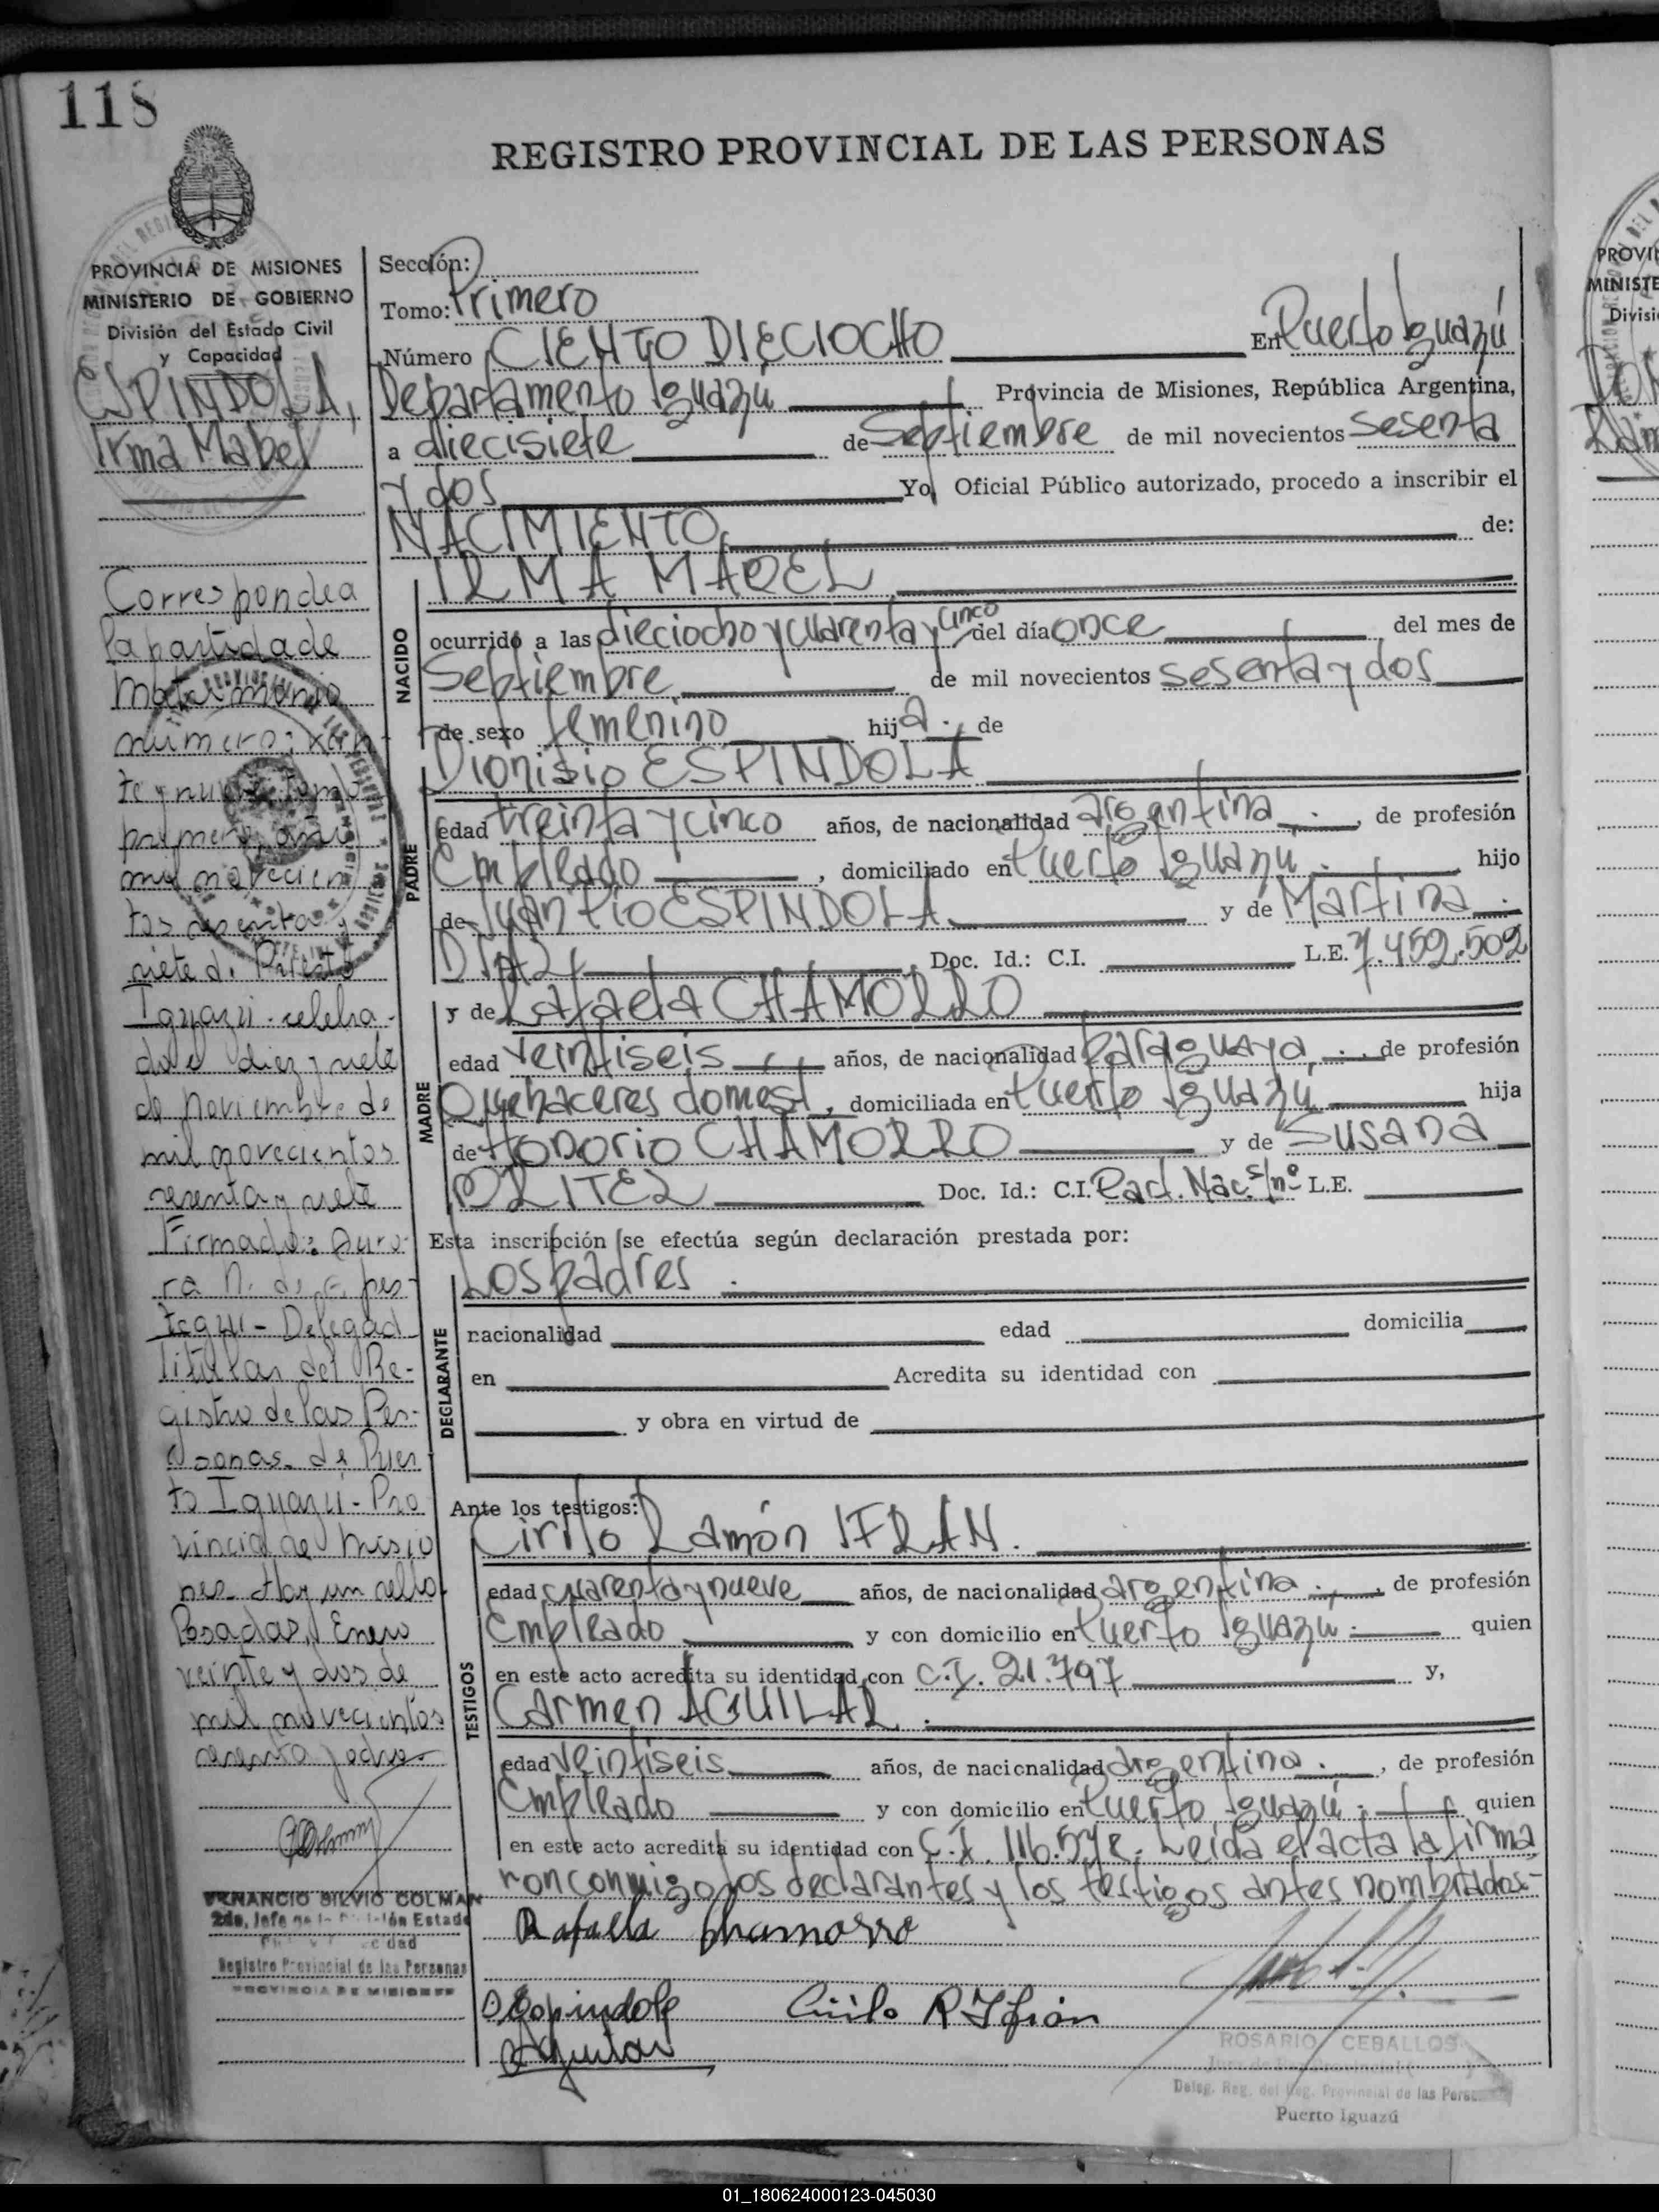 118
REGISTRO PROVINCIAL DE LAS PERSONAS
PROVINCIA DE MISIONES
MINISTERIO DE GOBIERNO
División del Estado Civil
y Capacidad
ESPINDOLA,
Irma Mabel
Correspondea
la partida de
Matrimonio
número: vein-
te y nueve tomo
primero, año
mil novecien
tos sesenta y
siete de Puerto
Iguazú - celebra-
do el diez y siete
de noviembre de
mil novecientos
sesenta y siete
Firmado: Auro-
ra N. de
Delegad
titular del Re-
gistro de las Per-
sonas de Puer
to Iguazú - Pro
vincia de Misio
nes - Hay un sello
Posadas, Enero
veinte y dos de
mil novecientos
sesenta y ocho
VENANCIO SILVIO COLMAN
2do. Jefe de la División Estado
Registro Provincial de las Personas
PROVINCIA DE MISIONES
Sección:
Tomo: Primero
Número CIENTO DIECIOCHO En Puerto Iguazú
Departamento Iguazú Provincia de Misiones, República Argentina,
a diecisiete de Septiembre de mil novecientos sesenta
y dos Yo, Oficial Público autorizado, procedo a inscribir el
NACIMIENTO de:
NACIDO
IRMA MABEL
ocurrido a las dieciocho y cuarenta y cinco del día once del mes de
Septiembre de mil novecientos sesenta y dos
de sexo femenino hija. de
PADRE
Dionisio ESPINDOLA
edad treinta y cinco años, de nacionalidad argentina, de profesión
Empleado, domiciliado en Puerto Iguazú. hijo
de Juan Pío ESPINDOLA y de Martina
DIAZ, Doc. Id.: C.I. L.E. 7.452.502
MADRE
y de Rafaela CHAMORRO
edad veintiseis años, de nacionalidad Paraguaya, de profesión
Quehaceres domest, domiciliada en Puerto Iguazú hija
de Honorio CHAMORRO y de Susana
BRITEZ Doc. Id.: C.I. Part. Nac. s/nº L.E.
Esta inscripción se efectúa según declaración prestada por:
DECLARANTE
Los padres.
nacionalidad edad domicilia
en Acredita su identidad con
y obra en virtud de
Ante los testigos:
TESTIGOS
Cirilo Ramón IFRAN.
edad cuarenta y nueve años, de nacionalidad argentina, de profesión
Empleado y con domicilio en Puerto Iguazú. quien
en este acto acredita su identidad con C.I. 21.797 y,
Carmen AGUILAR.
edad veintiseis años, de nacionalidad argentina., de profesión
Empleado y con domicilio en Puerto Iguazú. quien
en este acto acredita su identidad con C.I. Leída el acta la firma
ron conmigo los declarantes y los testigos antes nombrados.-
Rafaela Chamorro
D Espindola Cirilo R Ifrán
Aguilar
ROSARIO CEBALLOS
Deleg. Reg. del Reg. Provincial de las Pers
Puerto Iguazú
PROVI
MINISTE
Divisi
01_180624000123-045030